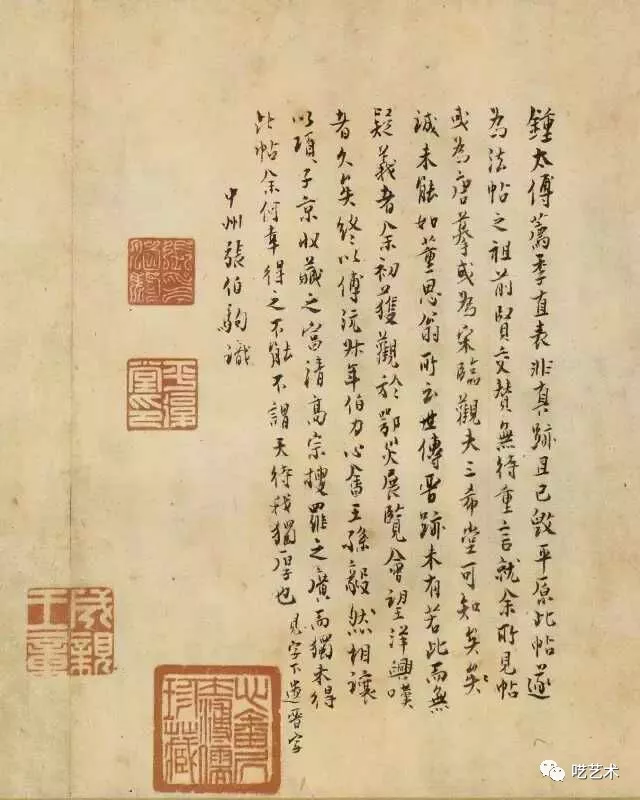 鍾太傅薦季直表非真跡且已毀平原此帖遂
為法帖之祖前賢交贊無待重言就余所見帖
或為唐摹或為宋臨觀夫三希堂可知矣矣
誠未能如董思翁所云世傳晉跡未有若此而無
疑義者余初獲觀於鄂災展覽會望洋興嘆
者久矣終以傅沅叔年伯力心畬王孫毅然相讓
以項子京收藏之富清高宗搜羅之廣而獨未得
此帖余何幸得之不能不謂天待我獨厚也 見字下遺晉字
中州張伯駒識
平復堂印
成親王章
溥儒珍藏
呓艺术